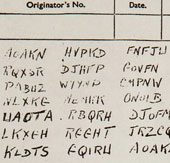 Originator's No. Date.
AOAKN HVPKD FNFJU
RQXSR DJHFP GOVFN
PABUZ WYYNP CMPNW
NLXKG MEMKK ONOIB
UAOTA RBQRH DJOFM
LKXGH RGGHT JRZCQ
KLDTS FQIRU AOAK